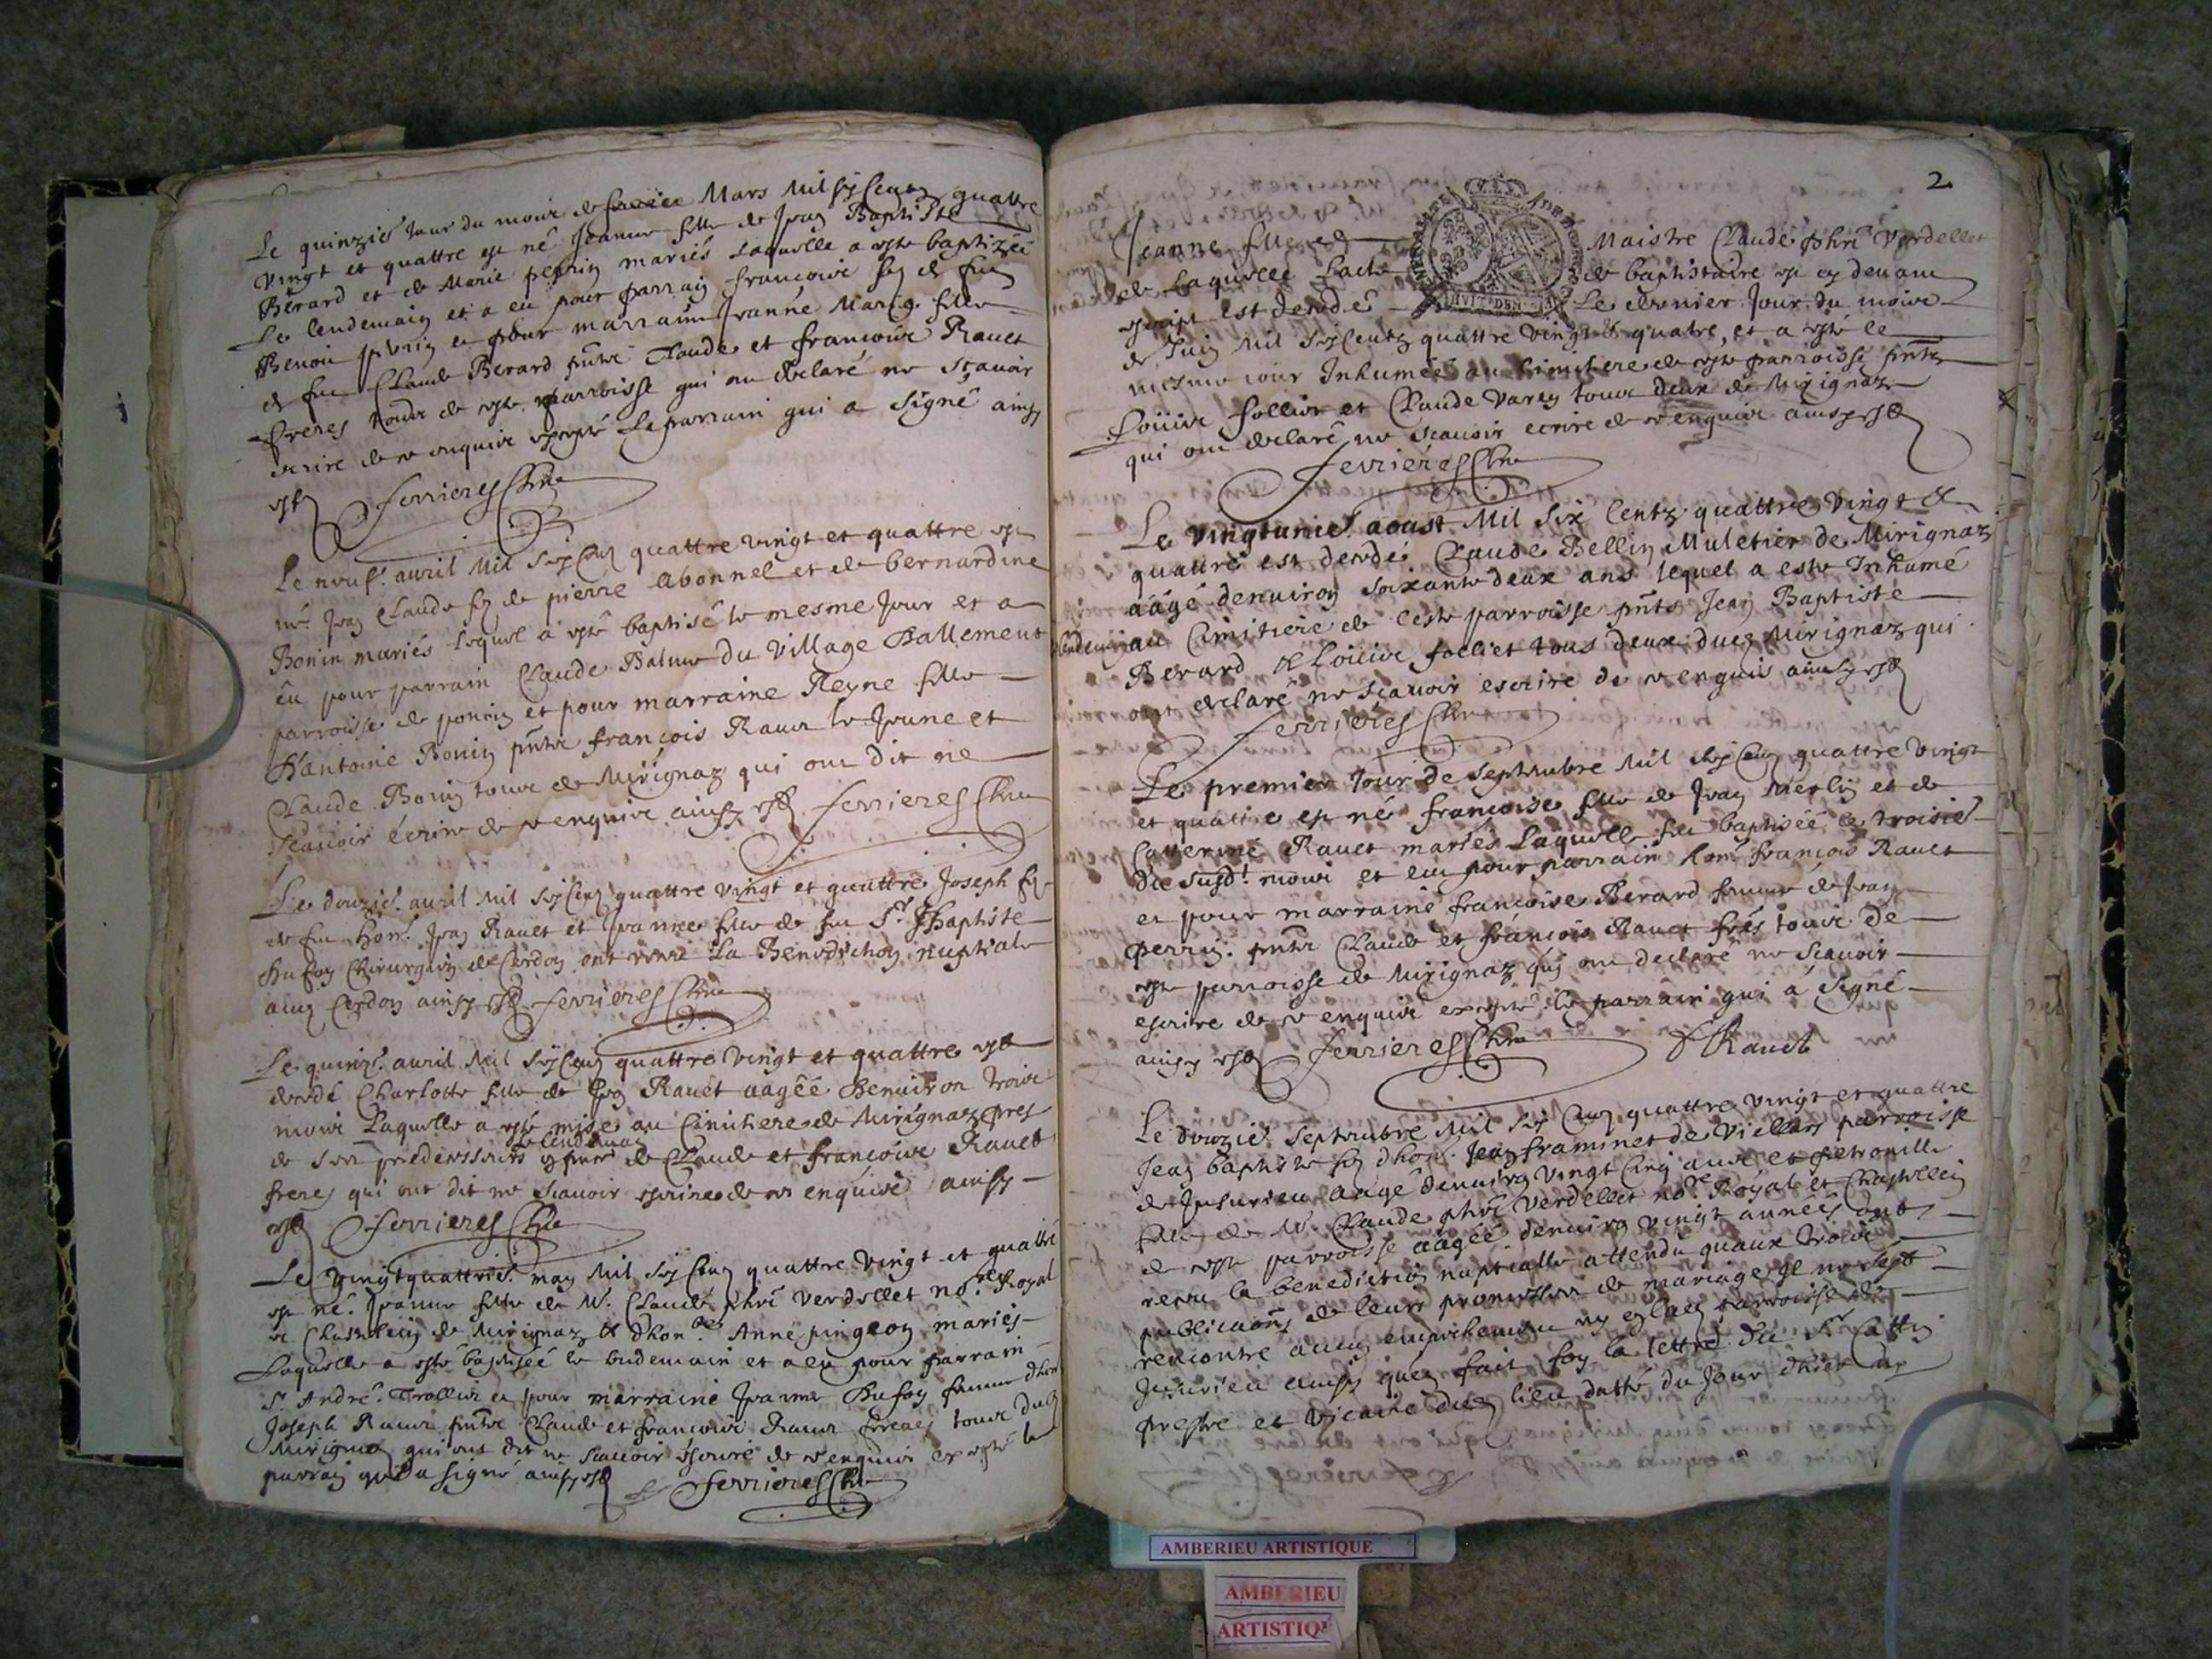 Le quinzie Jour du mois de Mars Mil six Centz quattre
vingt et quattre est né Jeanne fille de Jean Baptiste
Berard et de Marie perrin mariés Laquelle a este baptizée
Le lendemain et a eu pour parrain francois filz de feu
Benoit perrin et pour marraine Jeanne Marie fille
de feu Claude Berard pntz Claude et francois Ravet
freres tous de este parroisse qui ont declaré ne sçavoir
escrire de ce enquis excepté Le parrain qui a Signé ainsy
est ferrieres Cure
Le neuf. avril Mil six Centz quattre vingt et quattre est
né Jean Claude filz de pierre Abonnel et de bernardine
Bonin mariés Lequel a esté baptisé le mesme Jour et a
eu pour parrain Claude Balme du village Ballement
parroisse de poncin et pour marraine Reyne fille
D'antoine Bonin pntz françois Ravet le Jeune et
Claude Bonin tous de Mirignaz qui ont dit ne
Scavoir écrire de ce enquis ainsy est ferrieres Cure
Le douzie. avril Mil six Centz quattre vingt et quattre Joseph filz
de feu hon. Jean Ravet et Jeanne fille de feu Sr. JBaptiste
Dufoy Chirurgien de Cerdon ont receu La Benediction nuptiale
aud Cerdon ainsy est ferrieres Cure
Le quinz. avril Mil six Centz quattre vingt et quattre est
decedé Charlotte fille de Jean Ravet aagée Denviron trois
mois Laquelle a esté mise au Cimitiere de Mirignaz pres
le lendemain
de ses predecesseurs pntz de Claude et francois Ravet
freres qui ont dit ne scavoir escrire de ce enquis ainsy
est ferrieres Cure
Le vingtquattrie. may Mil six Centz quattre vingt et quattre
est né. Jeanne fille de Mr. Claude phri Verdellet no.re Royal
et Chastelein de Mirignaz & Dhon.ble Anne pingeon mariés
Laquelle a esté baptisée le lendemain et a eu pour parrain
Sr. André. Trollier et pour marraine Jeanne Dufoy femme dhon
Joseph Ravet pntz Claude et francois Ravet freres tous dud
Mirignaz qui ont dit ne scavoir escrire de ce enquis excepté le
parrain qui a signé ainsy est ferrieres Cure
2
Jeanne fille de Maistre Claude phri Verdellet
de Laquelle Lacte de baptistaire est cy devant
escript est decedé Le dernier Jour du mois
de Juin Mil six Centz quattre vingt & quatre, et a esté le
mesme iour Inhumée au Cimitiere de este parroisse pntz
Louis follier et Claude Varey tous deux de Mirignaz
qui ont declaré ne scavoir ecrire de ce enquis ainsy est
ferrieres Cure
Le vingtunie. aoust Mil Six Centz quattre vingt &
quattre est decedé Claude Bellin Muletier de Mirignaz
aagé denviron soixante deux ans lequel a este Inhumé
lendemain au Cimitiere de Ceste parroisse pnts Jean Baptiste
Berard & Louis follier tous deux dud Mirignaz qui
ont declaré ne sçavoir escrire de ce enquis ainsy est
ferrieres Cure
Le premier Jour de Septembre Mil six Centz quattre vingt
et quattre est né françoise fille de Jean Merlin et de
Catterine Ravet mariés Laquelle fut baptisée le troisie
du susd. mois et eu pour parrain hon. françois Ravet
et pour marraine françoise Berard femme de Jean
perrin. pntz Claude et françois Ravet frés tous de
este parroisse de Mirignaz qui ont declaré ne scavoir
escrire de ce enquis excepté le parrain qui à Signé
ainsy est ferrieres Cure f Ravet
Le douzie. Septembre Mil six Centz quattre vingt et quattre
Jean baptiste filz dhon. Jean framinet de Viellars parroisse
de Jusurieu aagé denviron vingt Cinq ans et petronille
fille de Mr. Claude phri Verdellet no.re Royal et Chastellein
de este parroisse aagée denviron vingt années ont
receu la benediction nuptialle attendu quaux trois
publications de leurs promesses de mariage Il ne sest
rencontré aucun empeschement ny en lad parroisse de
Jusurieu ainsy quen fait foy la lettre du Sr Cattin
prestre et vicaire dud lieu datté du Jour dhier
AMBERIEU ARTISTIQUE
AMBERIEU
ARTISTIQ